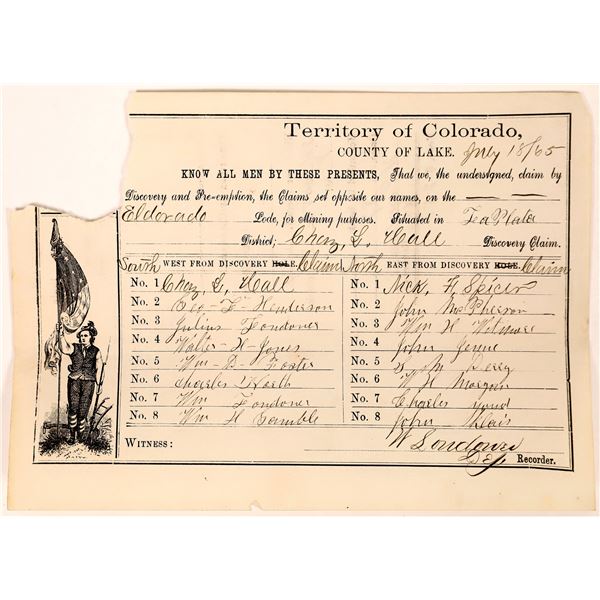 Territory of Colorado,
COUNTY OF LAKE. July 18/65
KNOW ALL MEN BY THESE PRESENTS, That we, the understgned, claim by
Discovery and Pre-emption, the Claims set opposite our names, on the
Eldorado Lode, for Mining purposes. Situated in
District; Chaz, L. Hall Discovery Claim.
South WEST FROM DISCOVERY HOLE. Claim North EAST FROM DISCOVERY HOLE. Claim
No. 1 Chaz L. Hall No. 1 Nick. H. Spicer
No. 2 Geo - F - Henderson No. 2 John McPherson
No. 3 Julius Londoner No. 3 Wm H Wilmore
No. 4 Walter - H - Jones No. 4 John
No. 5 Wm - D - Foster No. 5 M Percy
No. 6 Charles No. 6 W H Morgan
No. 7 Wm Londoner No. 7 Charles
No. 8 Wm H Gamble No. 8 John Blair
WITNESS: W Londoner
Dep Recorder.